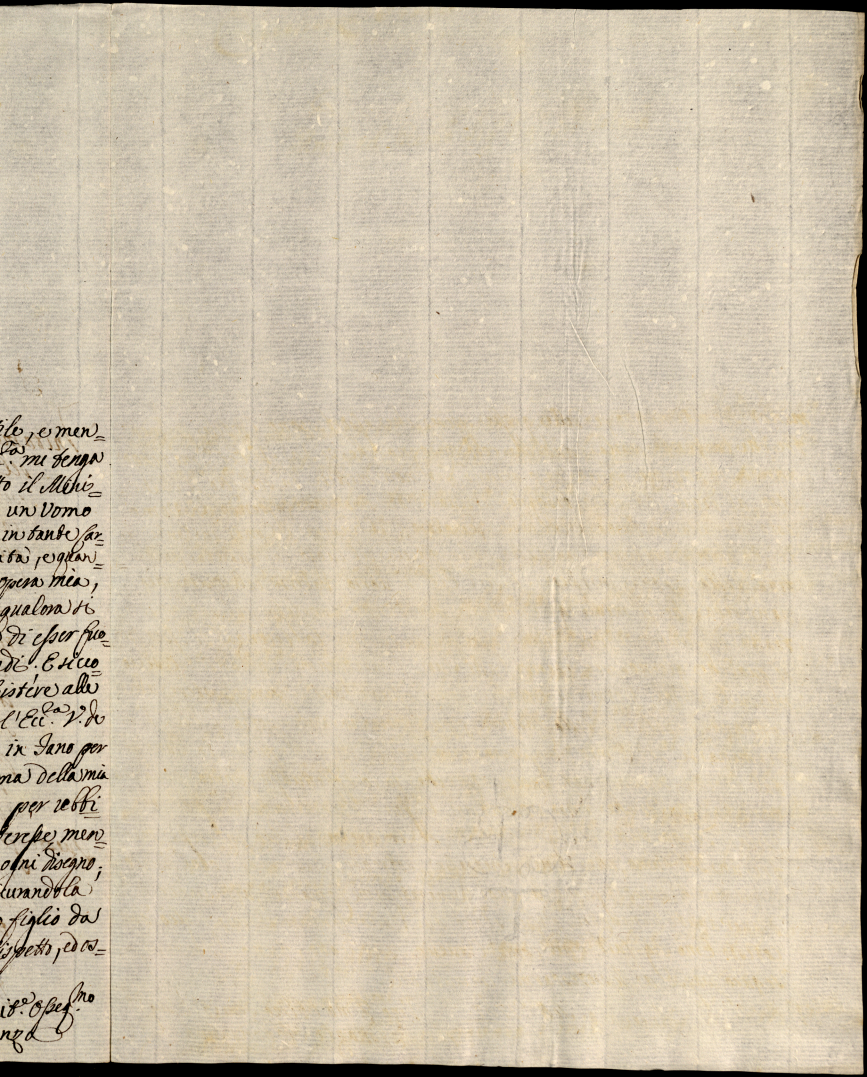 ile, e men=
mi tenga
to il Minis=
un Uomo
in tante Car=
ità, e quan=
opera mia,
qualora si
di esser fuo=
di. E sicco=
istere alle
l'Ecc.za V.
in Jano per
ma della mia
per
men=
ogni disegno;
curandola
figlio da
ispetto, ed os=
Osseq.mo
nza